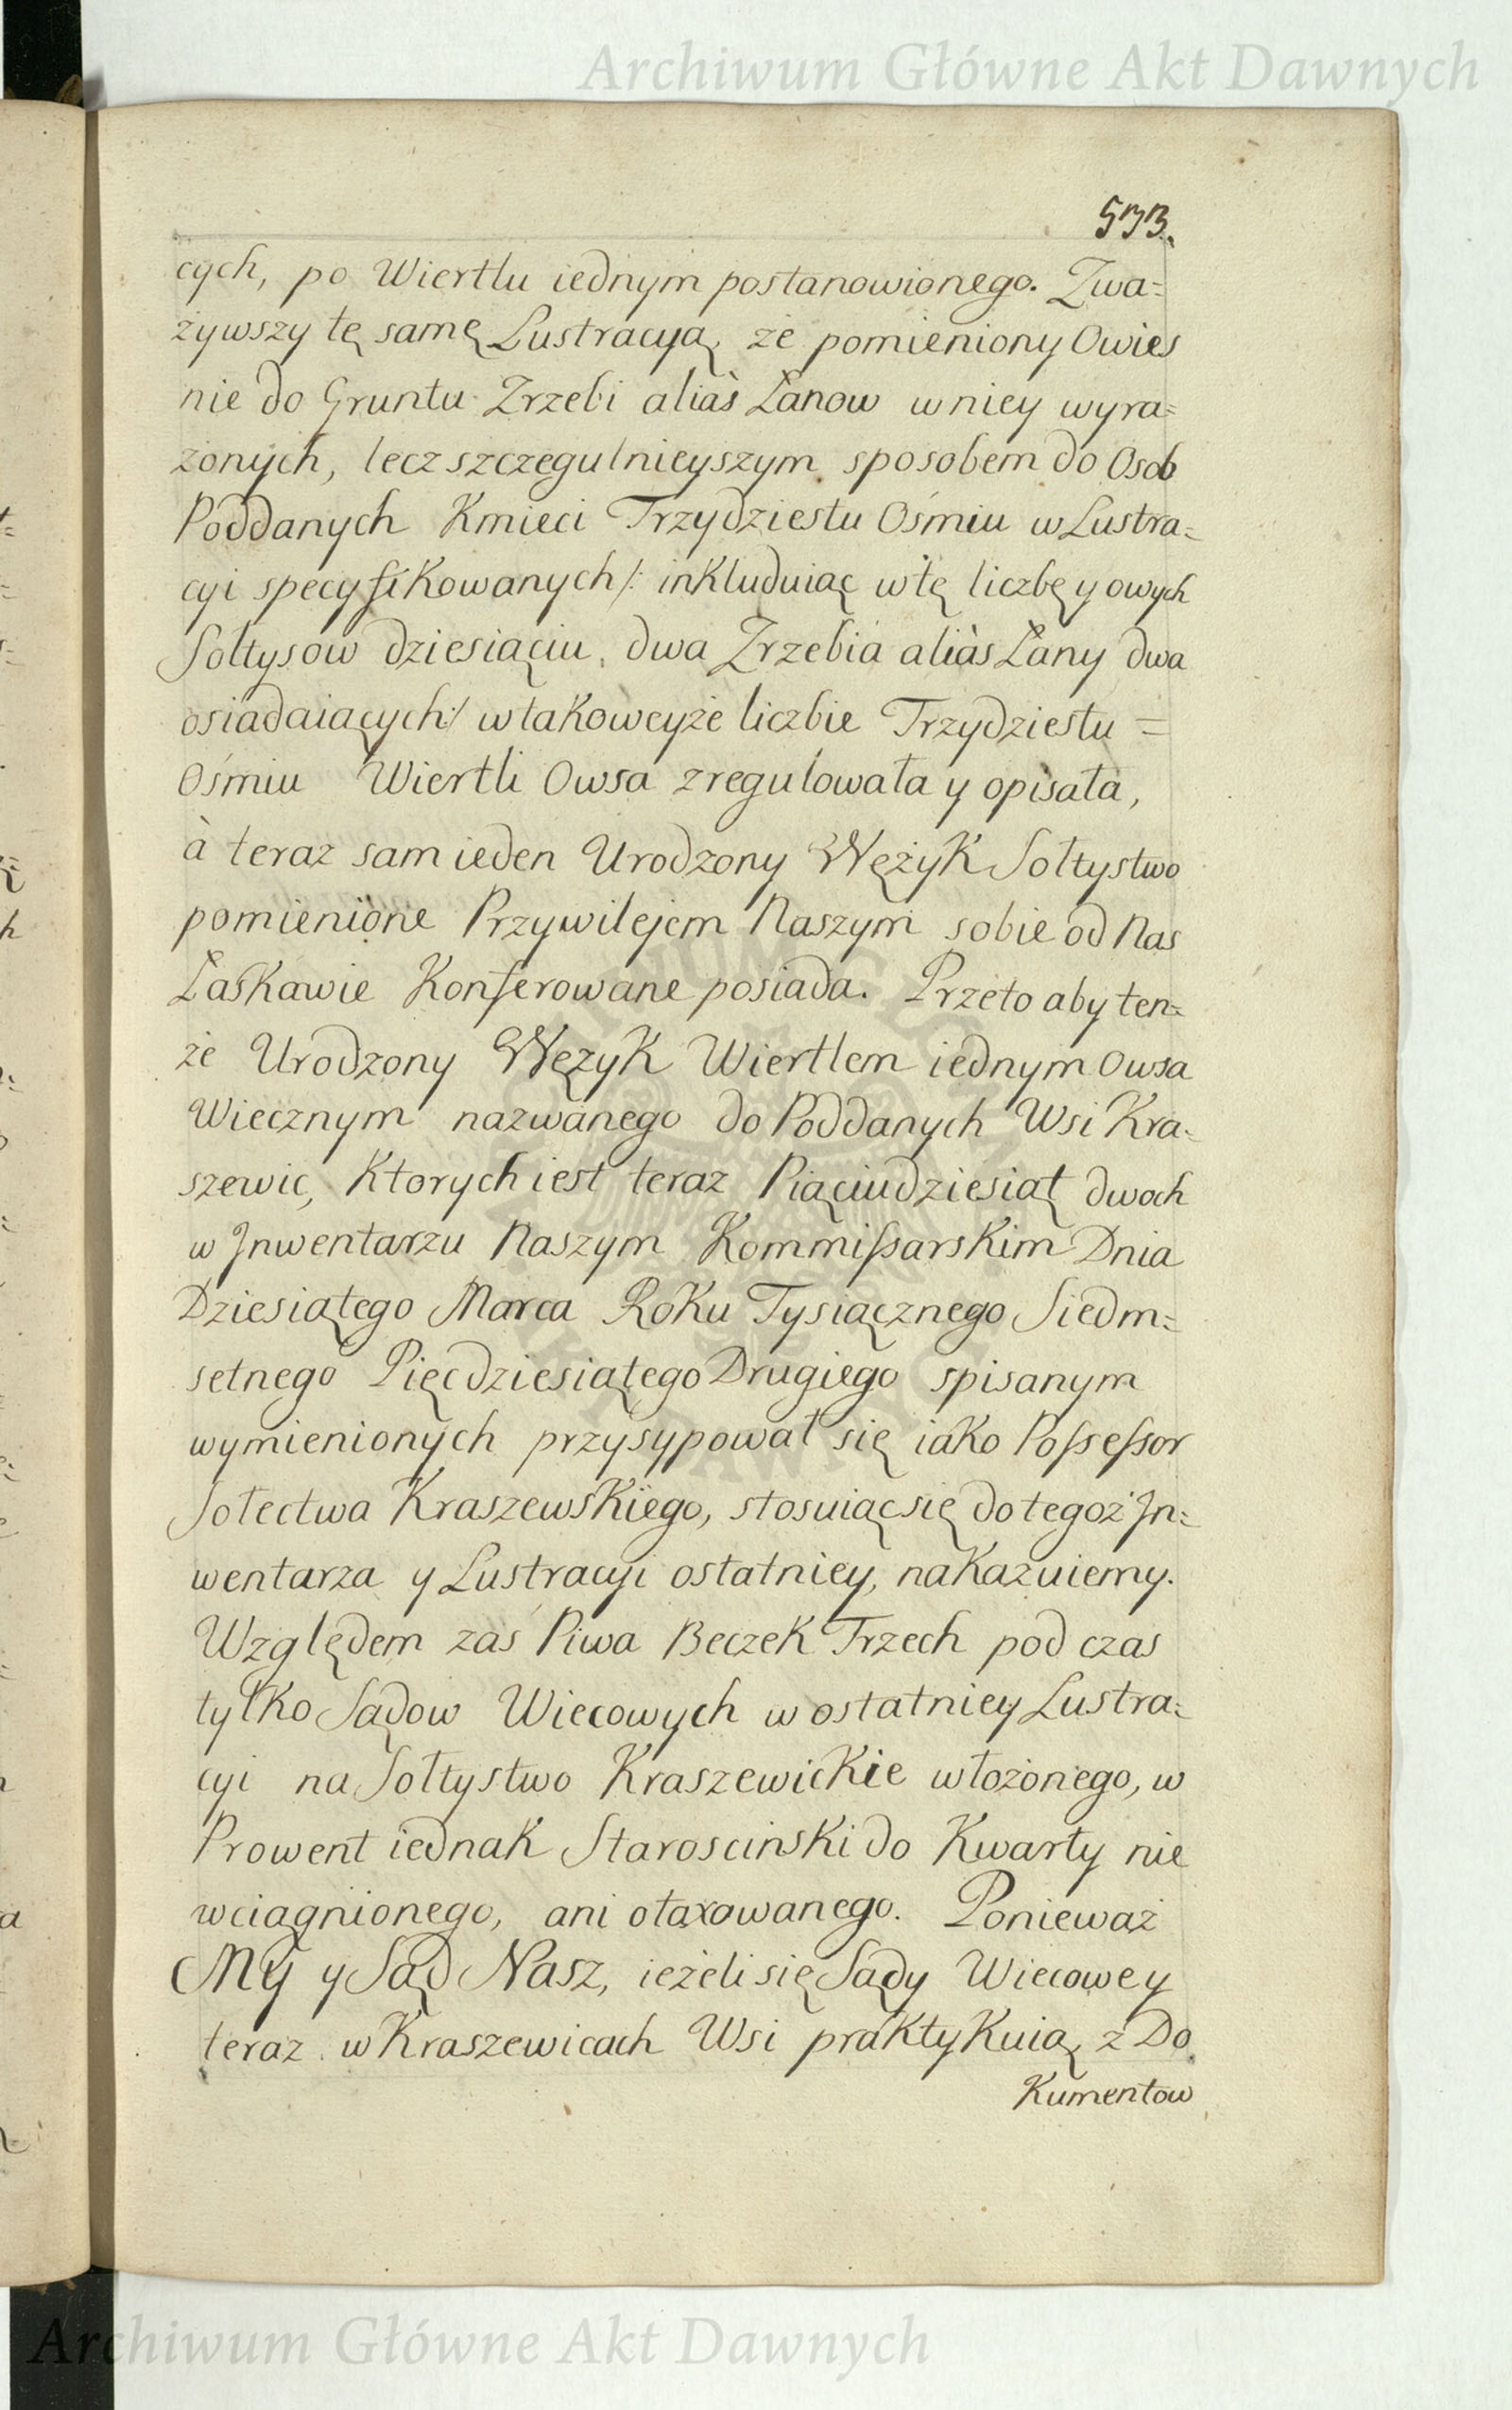 Archiwum Główne Akt Dawnych
533.
cych, po Wiertlu iednym postanowionego. Zwa=
żywszy tę samę Lustracyą, że pomieniony Owies
nie do Gruntu Zrzebi aliàs Łanow w niey wyra=
żonych, lecz szczegulnieyszym sposobem do Osob
Poddanych Kmieci Trzydziestu Ośmiu w Lustra=
cyi specyfikowanych /: inkluduiąc w tę liczbę y owych
Sołtysow dziesiąciu, dwa Zrzebia aliàs Łany dwa
osiadaiących :/ w takoweyże liczbie Trzydziestu =
Ośmiu Wiertli Owsa zregulowała y opisała,
à teraz sam ieden Urodzony Wężyk Sołtystwo
pomienione Przywilejem Naszym sobie od Nas
Łaskawie Konferowane posiada. Przeto aby ten=
że Urodzony Wężyk Wiertlem iednym Owsa
Wiecznym nazwanego do Poddanych Wsi Kra=
szewic, Ktorych iest teraz Piąciudziesiąt dwoch
w Jnwentarzu Naszym Kommissarskim Dnia
Dziesiątego Marca Roku Tysiącznego Siedm=
setnego Pięcdziesiątego Drugiego spisanym
wymienionych przysypował się iako Possessor
Sołectwa Kraszewskiego, stosuiąc się do tegoż Jn=
wentarza y Lustracyi ostatniey, nakazuiemy.
Względem zaś Piwa Beczek Trzech pod czas
tylko Sądow Wiecowych w ostatniey Lustra=
cyi na Sołtystwo Kraszewickie włożonego, w
Prowent iednak Staroscinski do Kwarty nie
wciągnionego, ani otaxowanego. Ponieważ
My y Sąd Nasz, ieżeli się Sądy Wiecowe y
teraz w Kraszewicach Wsi praktykuią, z Do
kumentow
Archiwum Główne Akt Dawnych